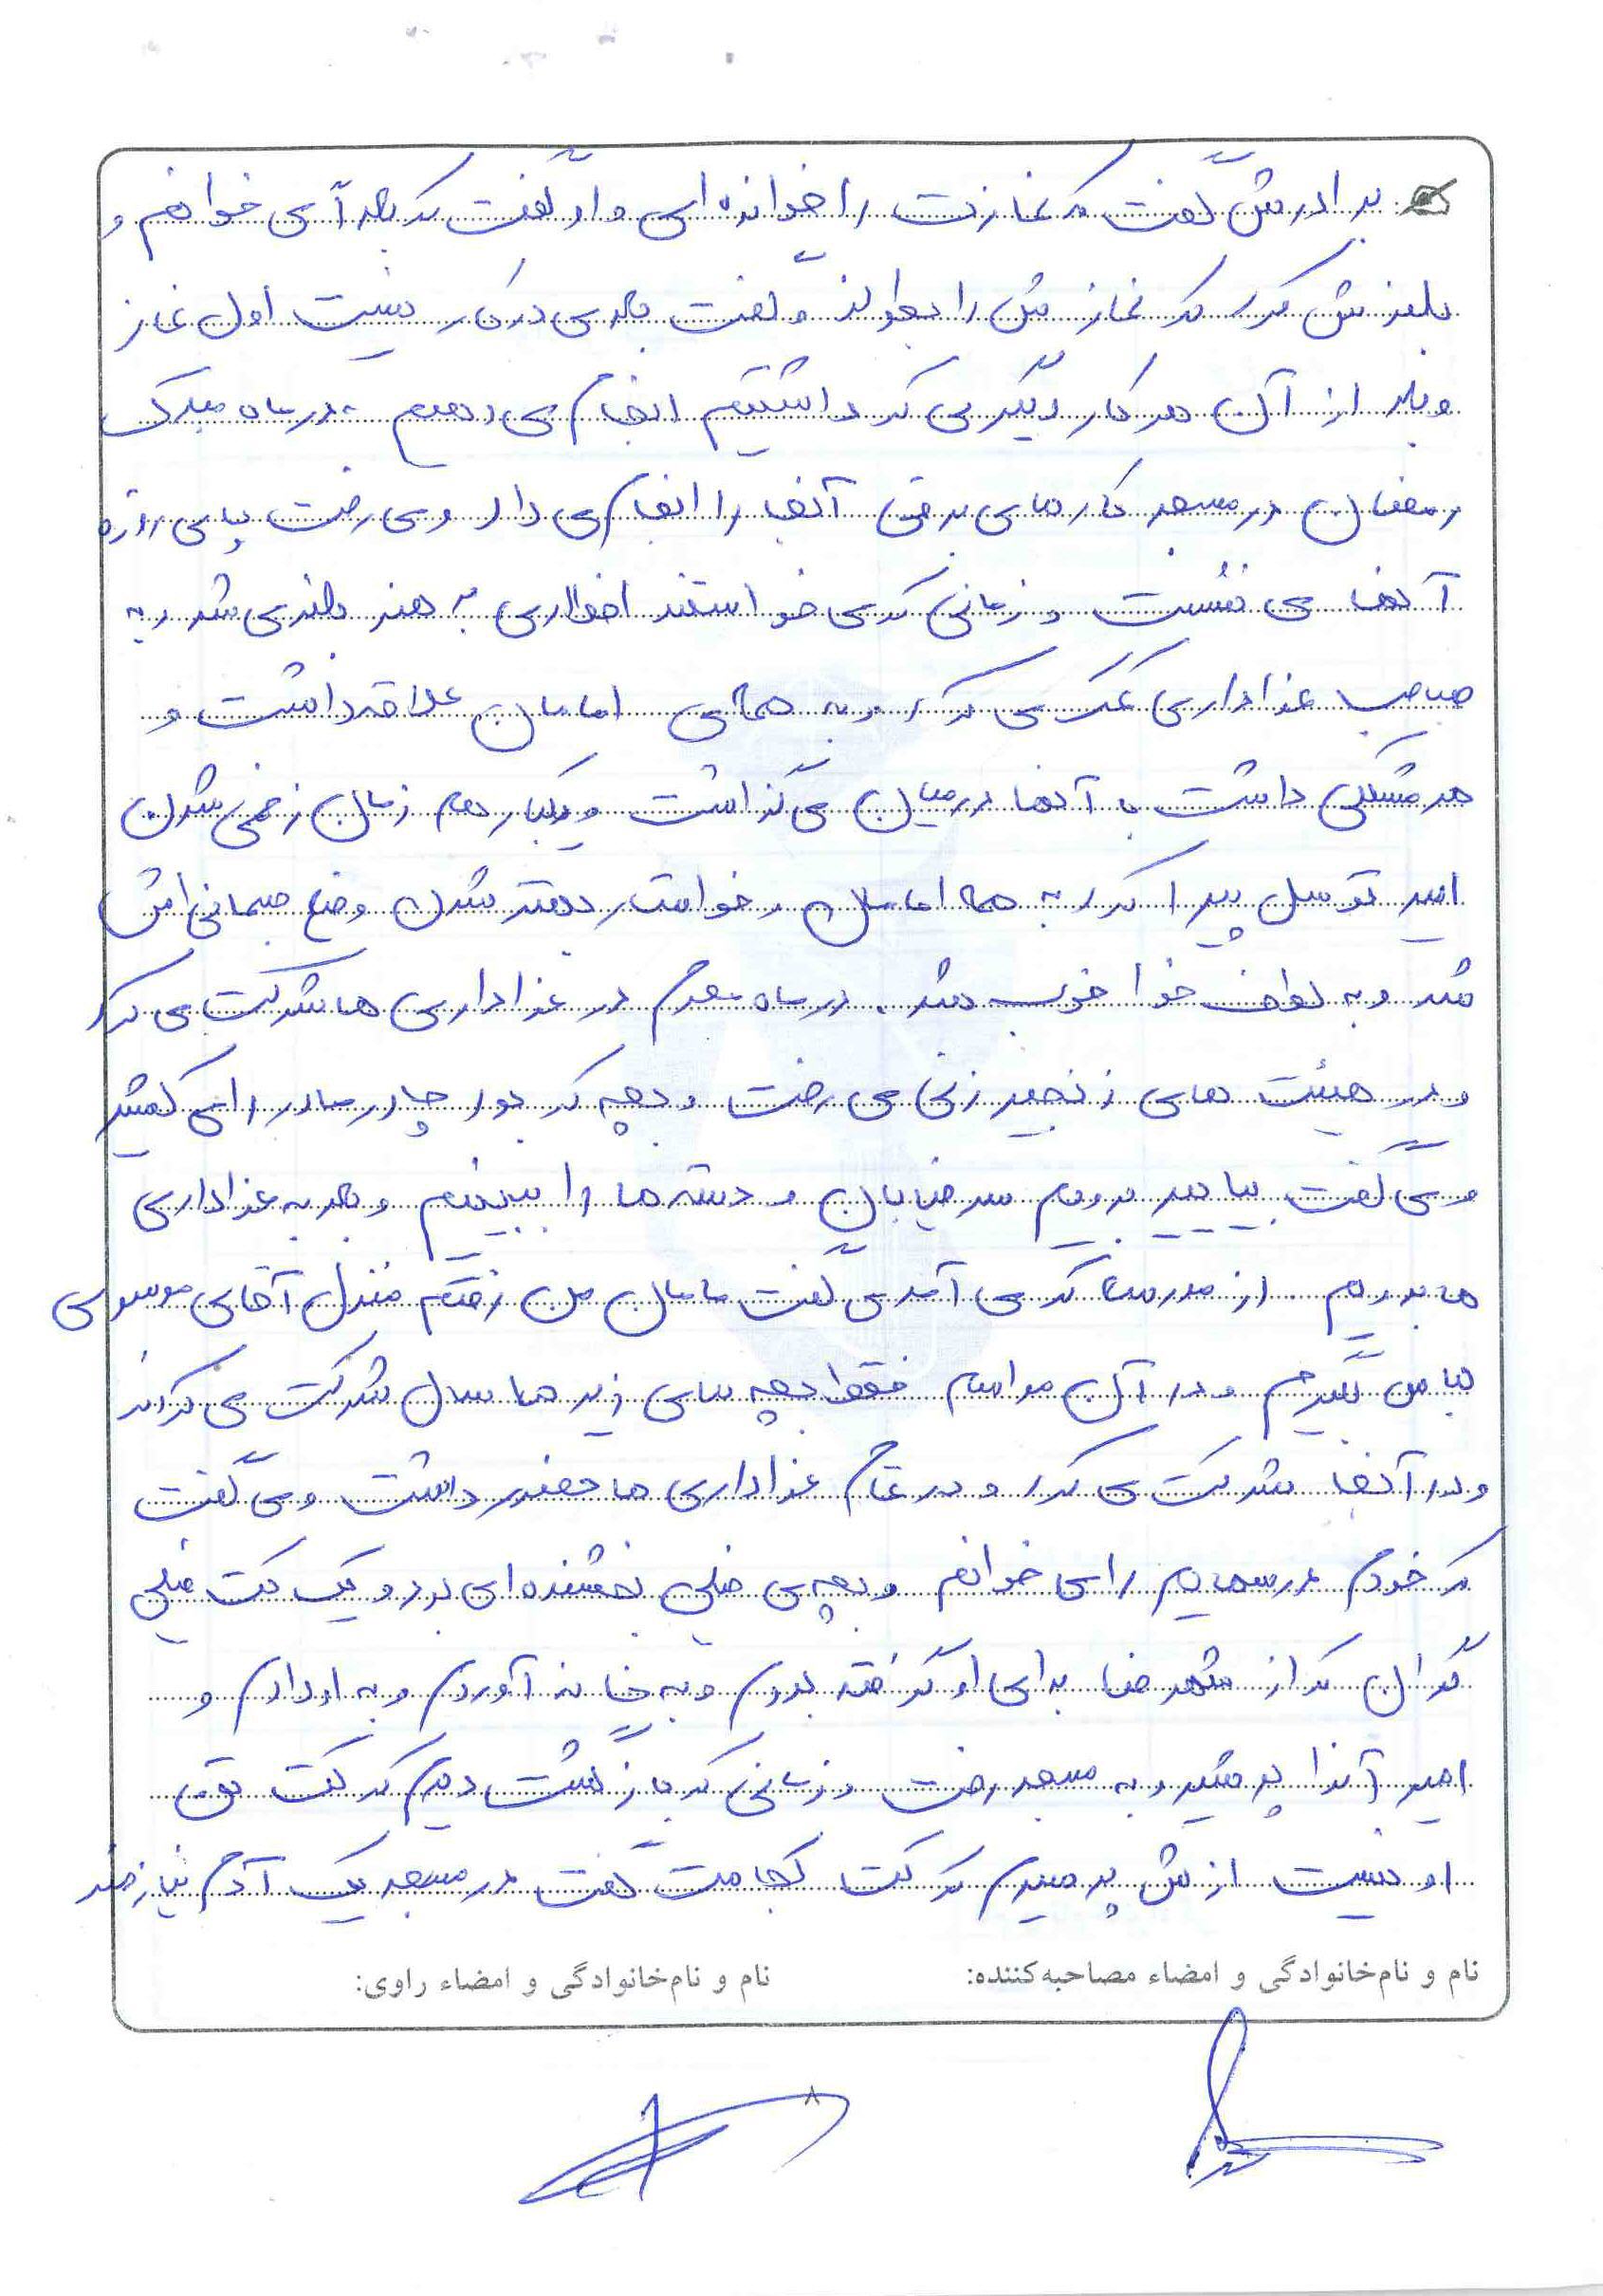 برادرش گفت که نمازت را خوانده‌ای و او گفت که بعداً می خوانم و
بلندش کرد که نمازش را بخواند و گفت بعدی در کار نیست اول نماز
و بعد از آن هر کار دیگری که داشتیم انجام می دهیم . در ماه مبارک
رمضان در مسجد کارهای برقی آنجا را انجام می داد و می رفت پای روزه
آنها می نشست و زمانی که می خواستند افطاری بدهند بلند می شد و به
صاحب عزاداری کمک می کرد و به همه‌ی امامان علاقه داشت و
هر مشکلی داشت با آنها درمیان می گذاشت و یکبار هم زمان زخمی شدن
امیر توسل پیدا کرد به همه امامان و خواستار بهتر شدن وضع جسمانی اش
شد و به لطف خدا خوب شد . در ماه محرم در عزاداری ها شرکت می کرد
و در هیئت های زنجیر زنی می رفت و بچه که بود چادر مادر را می کشید
و می گفت بیایید برویم سر خیابان و دسته ها را ببینیم و بعد به عزاداری
ها برویم . از مدرسه که می آمد می گفت مامان من رفتم منزل آقای موسوی
با من نگردیم و در آن مراسم فقط بچه های زیر ده سال شرکت می کردند
و در آنجا شرکت می کرد و در تمام عزاداری ها حضور داشت و می گفت
که خودم درسهایم را می خوانم و بچه ی خیلی بخشنده ای بود و یک کت خیلی
گران که از شهرضا برای او گرفته بودم و به خانه آوردم و به او دادم و
امیر آنرا پوشید و به مسجد رفت و زمانی که بازگشت دیدم که کت تن
او نیست ازش پرسیدم که کت کجاست گفت در مسجد یک آدم نیازمند
نام و نام‌خانوادگی و امضاء مصاحبه‌کننده: نام و نام‌خانوادگی و امضاء راوی:
۸